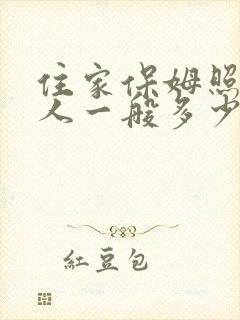 住家保姆照
人一般多少
紅豆包